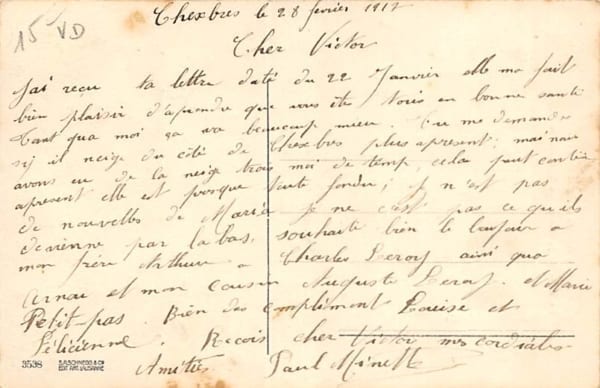 15 VD
Chexbres le 28 fevrier 1917
Cher Victor
J'ai reçu ta lettre daté du 22 Janvier elle ma fait
bien plaisir d'aprendre que vous ête tous en bonne santé
Tant qua moi ça va beaucoup mieu. Tu me demandes
si il neige du côté de Chexbres plus apresent; mai nous
avons eu de la neige trois moi de temp, cela peut
apresent elle est presque toute fondue; Je n'est pas
de nouvelles de Je ne c'est pas ce qu'ils
devienne par la bas, souhaite bien le bonjour a
mon frère Arthur a Charles Leroy ainsi qua
Arnau et mon cousin Auguste Leroy et Marie
Petit-pas. Bien des compliment Louise et
Félicienne. Recois cher Victor mes cordiales
Amitiés Paul
3538
EDIT. ART. LAUSANNE